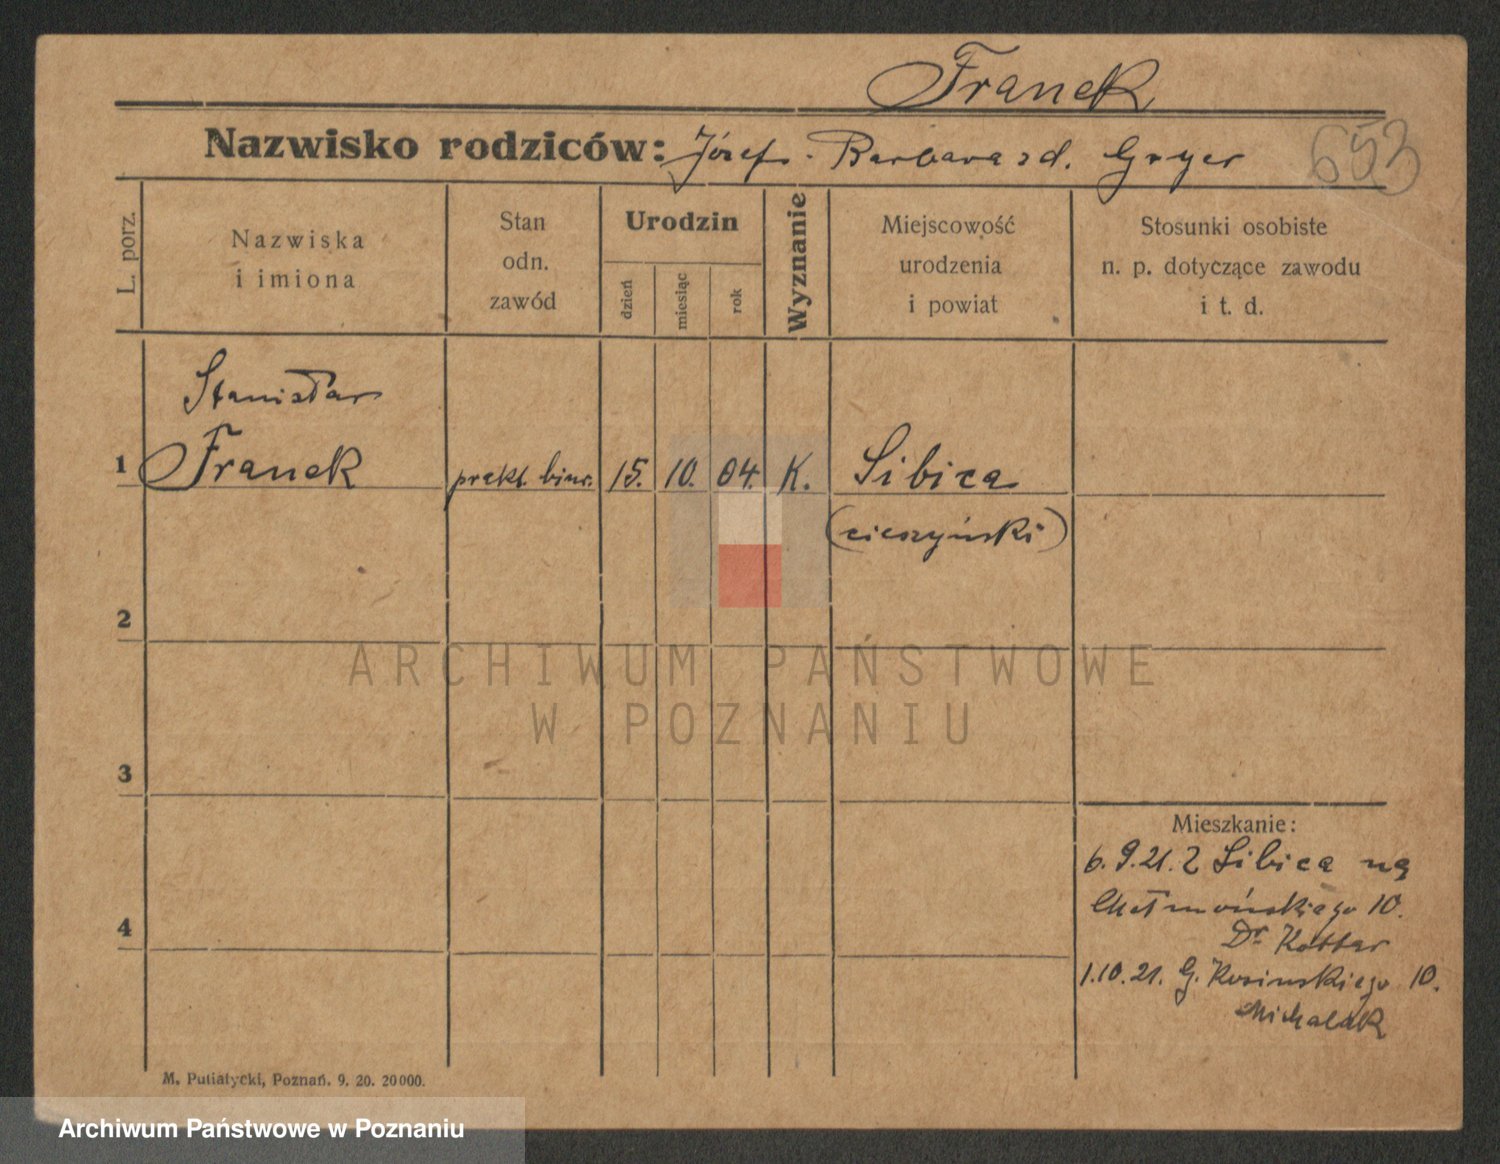 Franek
Nazwisko rodziców: Józef - Barbara zd. Gryer
653
L. porz.
Nazwiska
i imiona
Stan
odn.
zawód
Urodzin
dzień
miesiąc
rok
Wyznanie
Miejscowość
urodzenia
i powiat
Stosunki osobiste
n. p. dotyczące zawodu
i t. d.
Stanisław
1 Franek prakt. biur. 15. 10. 04. K. Sibica
(cieszyński)
2
3
4
Mieszkanie:
6. 9. 21. z Sibica na
Chełmońskiego 10.
Dr Kottar
1. 10. 21. G. Kosinskiego 10.
Michalak
M. Putiatycki, Poznań. 9. 20. 20000.
ARCHIWUM PAŃSTWOWE
W POZNANIU
Archiwum Państwowe w Poznaniu